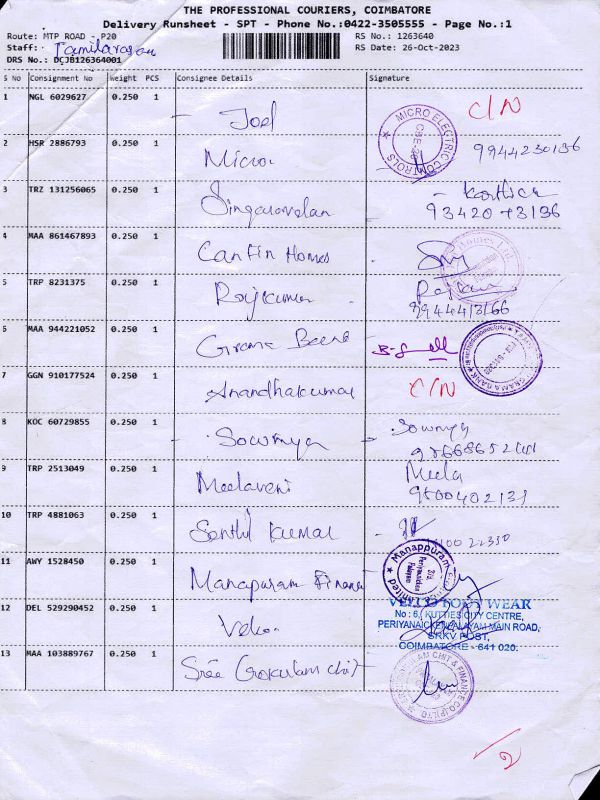 THE PROFESSIONAL COURIERS, COIMBATORE
Delivery Runsheet - SPT - Phone No.:0422-3505555 - Page No.:1
Route: MTP ROAD - P20
RS No.: 1263640
Staff: Tamilarasan
RS Date: 26-Oct-2023
DRS No.: DCJB126364001
S No Consignment No Weight PCS Consignee Details Signature
1 NGL 6029627 0.250 1 Joel C/N
2 HSR 2886793 0.250 1 Micro MICRO ELECTRIC CONTROLS 9944230136
3 TRZ 131256065 0.250 1 Singaravelan Karthick
93420 73196
4 MAA 861467893 0.250 1 CanFin Homes
5 TRP 8231375 0.250 1 Rajkumar
6 MAA 944221052 0.250 1 Grama Bank
7 GGN 910177524 0.250 1 Anandhakumar C/N
8 KOC 60729855 0.250 1 Sowmya Sowmya
9 TRP 2513049 0.250 1 Meelaveni Meela
9500402131
10 TRP 4881063 0.250 1 Senthil Kumar
11 AWY 1528450 0.250 1 Manapuram Finance Manappuram
12 DEL 529290452 0.250 1 Velu FOOT WEAR
No: 6, KUTTIES CITY CENTRE,
PERIYANAICKENPALAYAM MAIN ROAD,
SRKV POST,
COIMBATORE - 641 020.
13 MAA 103889767 0.250 1 Sree Gokulam chit CHIT & FINANCE CO.(P)LTD.
2